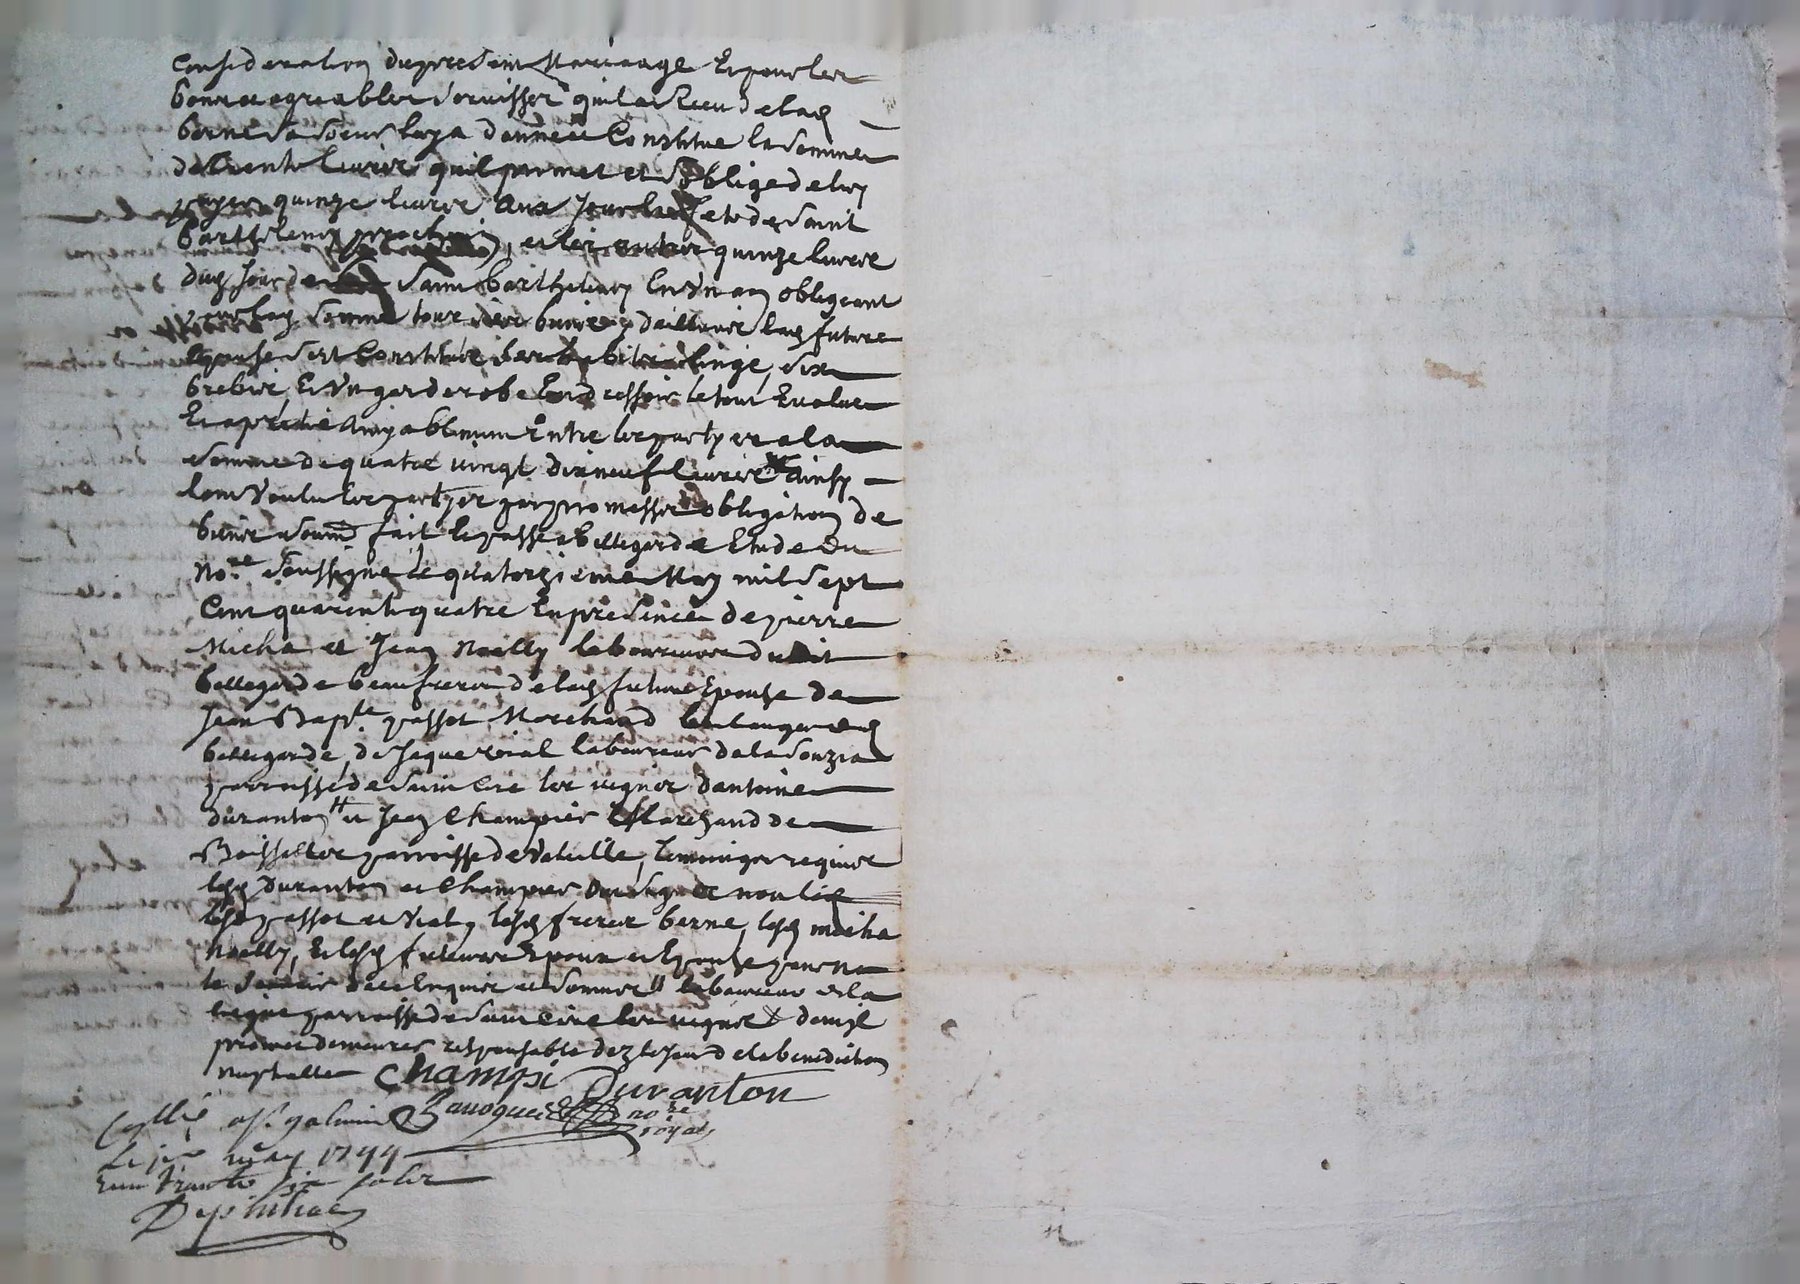 Consideration du present Mariage Et pour les
bons et agreables services qu'il a Receu de lad
berne sa soeur luy a donné et Constitue la somme
de trente livres qu'il promet et s'oblige de luy
payer quinze livres aux Jour et feste de saint
barthelemy prochain, et les autres quinze livres
dud Jour de saint barthelemy En Un an obligeant
pour lad somme tous ses biens, d'ailleurs lad future
Epouse s'est Constitué ses habits linge, six
brebis, Et Un garderobe En dressoir le tout Evalué
Et aprecié amyablement Entre les partyes a la
somme de quatre vingt dix neuf livres ainsy
l'ont voulu les partyes par promesse obligation de
biens soumd fait et passé a bellegarde Etude du
no.re soussigné le quatorzieme May mil sept
Cent quarente quatre En presence de pierre
Micha et Jean Noelly laboureurs dudit
bellegarde beaufreres de lad future Epouse de
Jean Bap.te passot Marchand boulanger aud
bellegarde, de Jaque vial laboureur de la Souzia
parroisse de saint Cire les vignes d'antoine
duranton et Jean Champier Marchand de
Boisset les parroisse de Veleille, temoins requis
lesd Duranton et Champier ont signé et non les
lesd passot et vial, lesd freres berne, lesd micha
Noelly, Et lesd futeurs Epoux et Epouse pour ne
le scavoir de ce Enquis et sommés laboureur de la
parroisse de saint Cire les vignes
promet demeurer responsable dez le Jour de la benediction
nuptialle Champié Duranton
no.re
royal
Collié a St galmier
Le may 1744